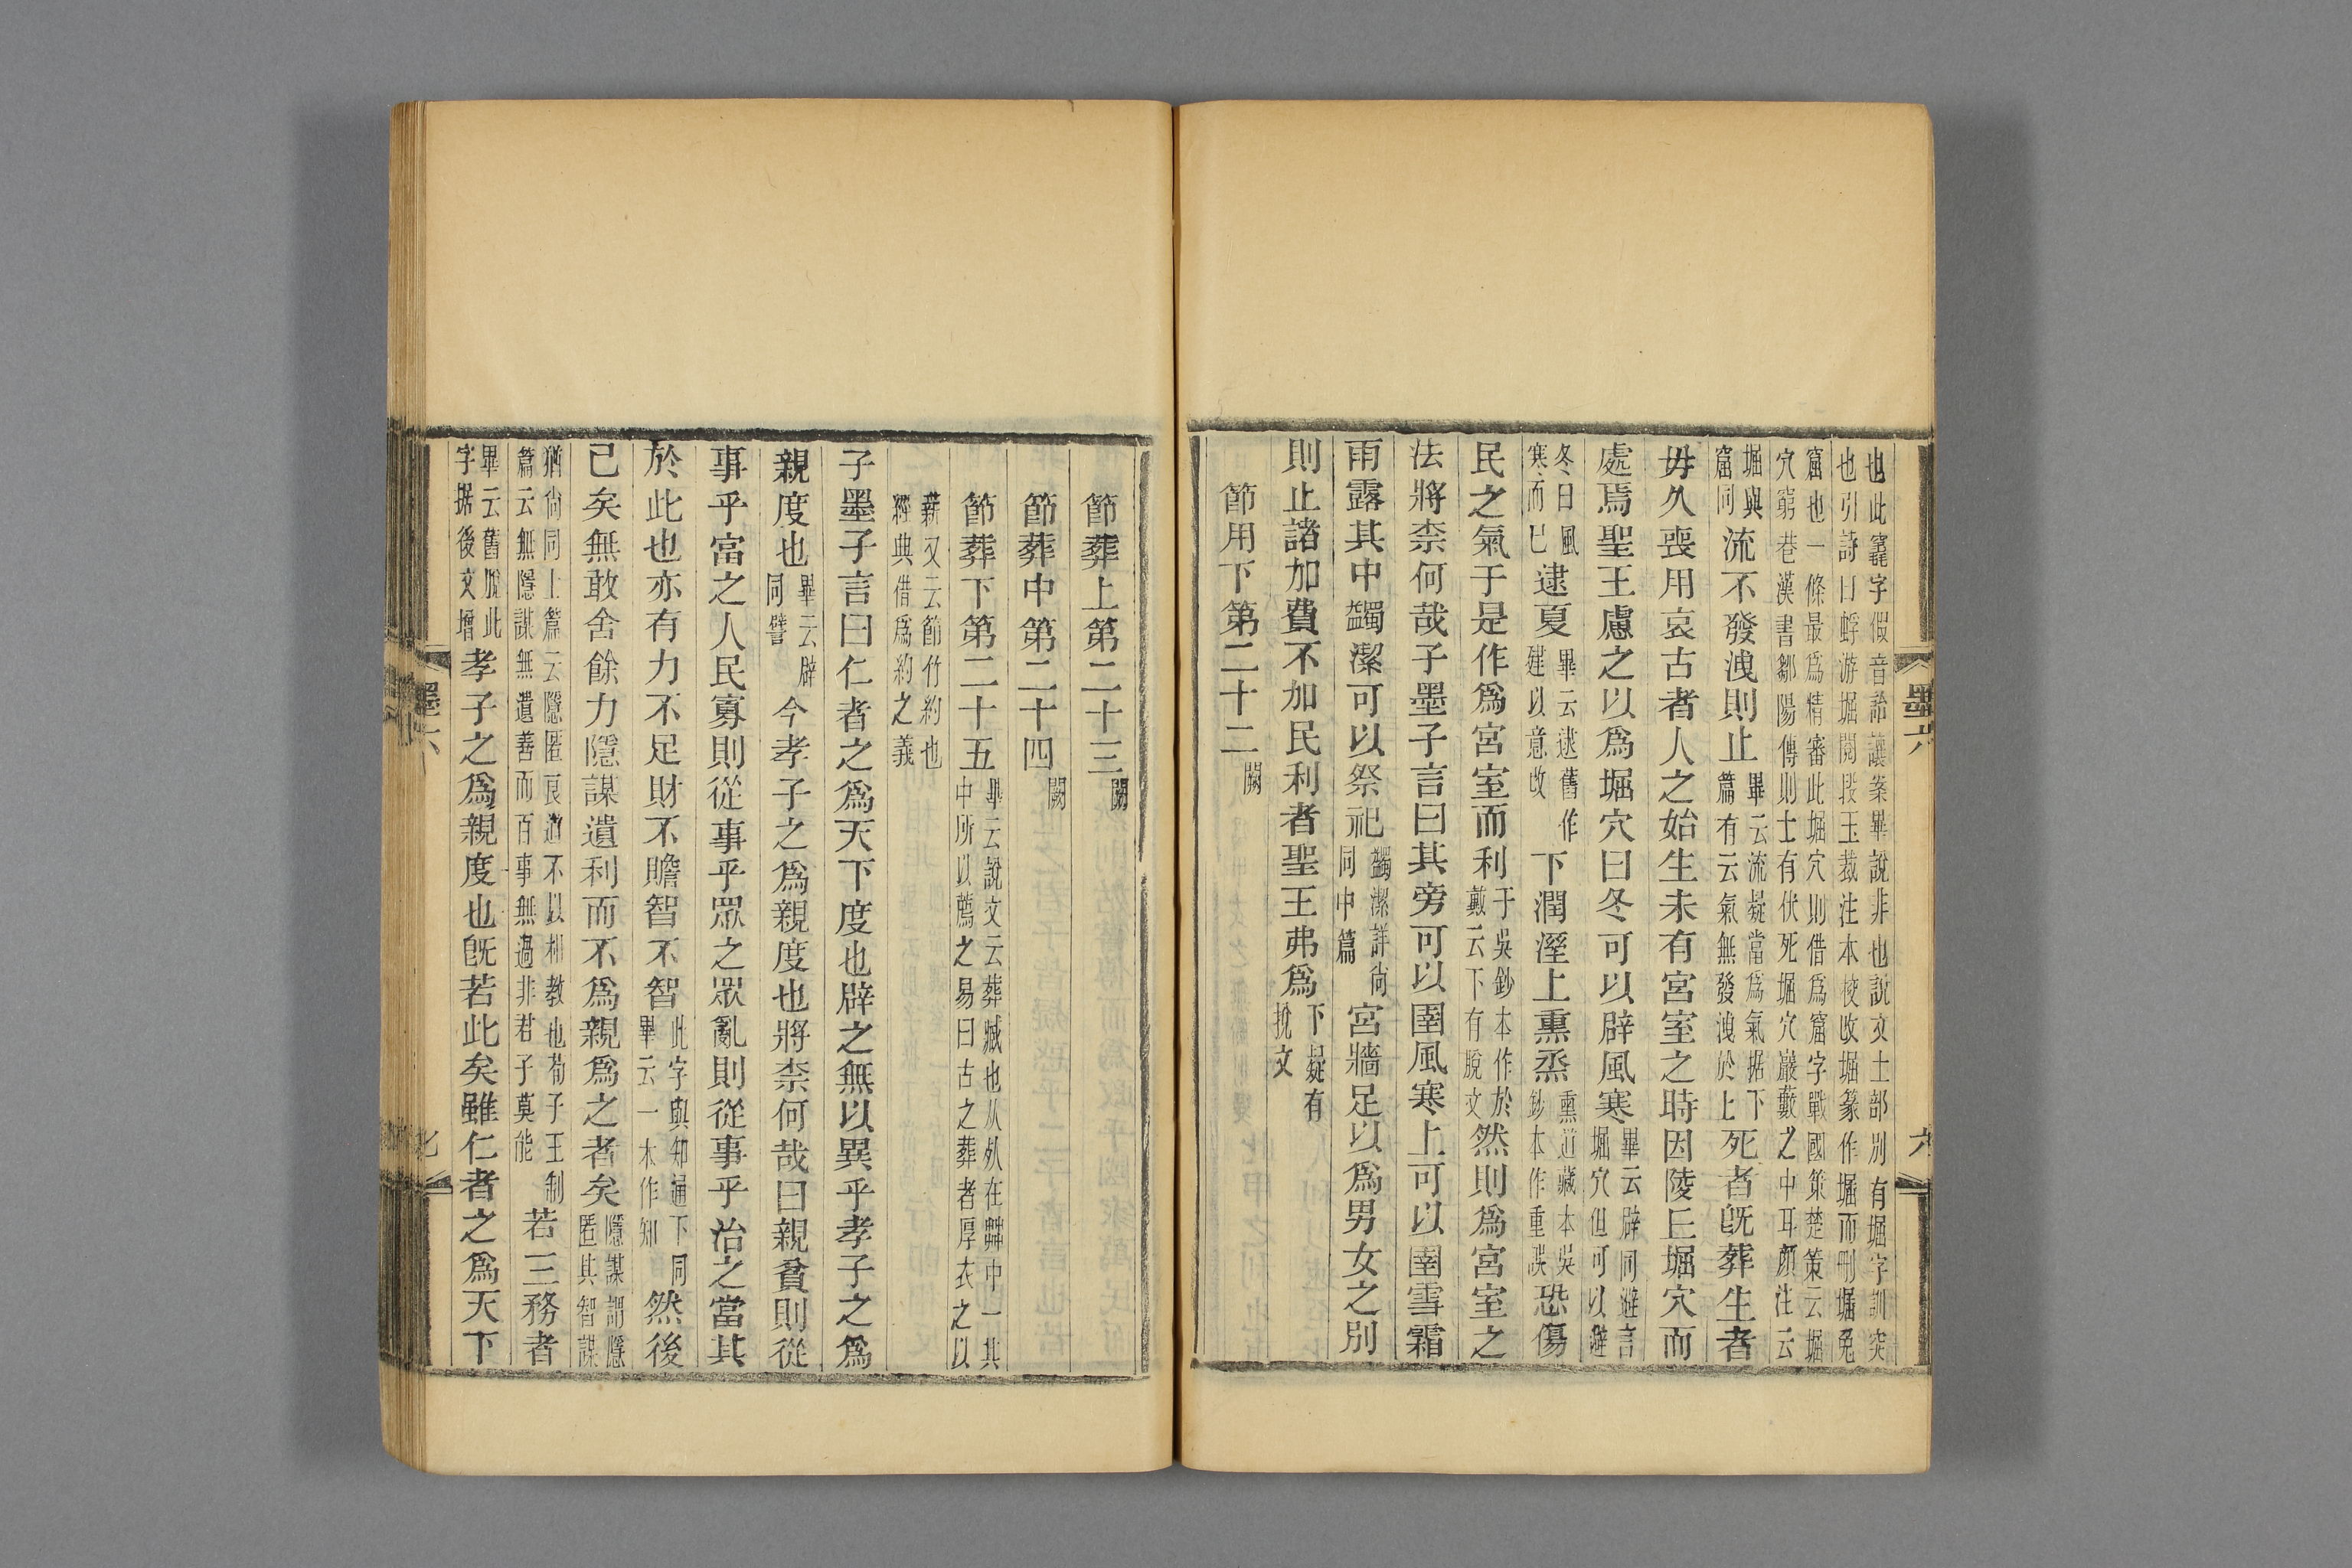 也此竁字假音詒讓案畢說非也說文土部別有堀字訓突
也引詩曰蜉游堀閱段玉裁注本校改堀篆作堀而刪堀兔
窟也一條最爲精審此堀穴則借爲窟字戰國策楚策云堀
穴窮巷漢書鄒陽傳則士有伏死堀穴巖藪之中耳顏注云
堀與窟同流不發洩則止畢云流疑當爲氣据下篇有云氣無發洩於上死者旣葬生者
毋久喪用哀古者人之始生未有宮室之時因陵丘堀穴而
處焉聖王慮之以爲堀穴曰冬可以辟風寒畢云辟同避言堀穴但可以避
冬日風寒而已逮夏畢云逮舊作建以意改下潤溼上熏烝熏道藏本吳鈔本作重誤恐傷
民之氣于是作爲宮室而利于吳鈔本作於戴云下有脫文然則爲宮室之
法將柰何哉子墨子言曰其旁可以圉風寒上可以圉雪霜
雨露其中蠲潔可以祭祀蠲潔詳尙同中篇宮牆足以爲男女之別
則止諸加費不加民利者聖王弗爲下疑有挩文
節用下第二十二闕
墨六
六
節葬上第二十三闕
節葬中第二十四闕
節葬下第二十五畢云說文云葬臧也从死在茻中一其中所以薦之易曰古之葬者厚衣之以
薪又云節竹約也經典借爲約之義
子墨子言曰仁者之爲天下度也辟之無以異乎孝子之爲
親度也畢云辟同譬今孝子之爲親度也將柰何哉曰親貧則從
事乎富之人民寡則從事乎眾之眾亂則從事乎治之當其
於此也亦有力不足財不贍智不智此字與知通下同畢云一本作知然後
已矣無敢舍餘力隱謀遺利而不爲親爲之者矣隱謀謂隱匿其智謀
猶尙同上篇云隱匿良道不以相教也荀子王制篇云無隱謀無遺善而百事無過非君子莫能若三務者
畢云舊脫此字据後文增孝子之爲親度也旣若此矣雖仁者之爲天下
墨六